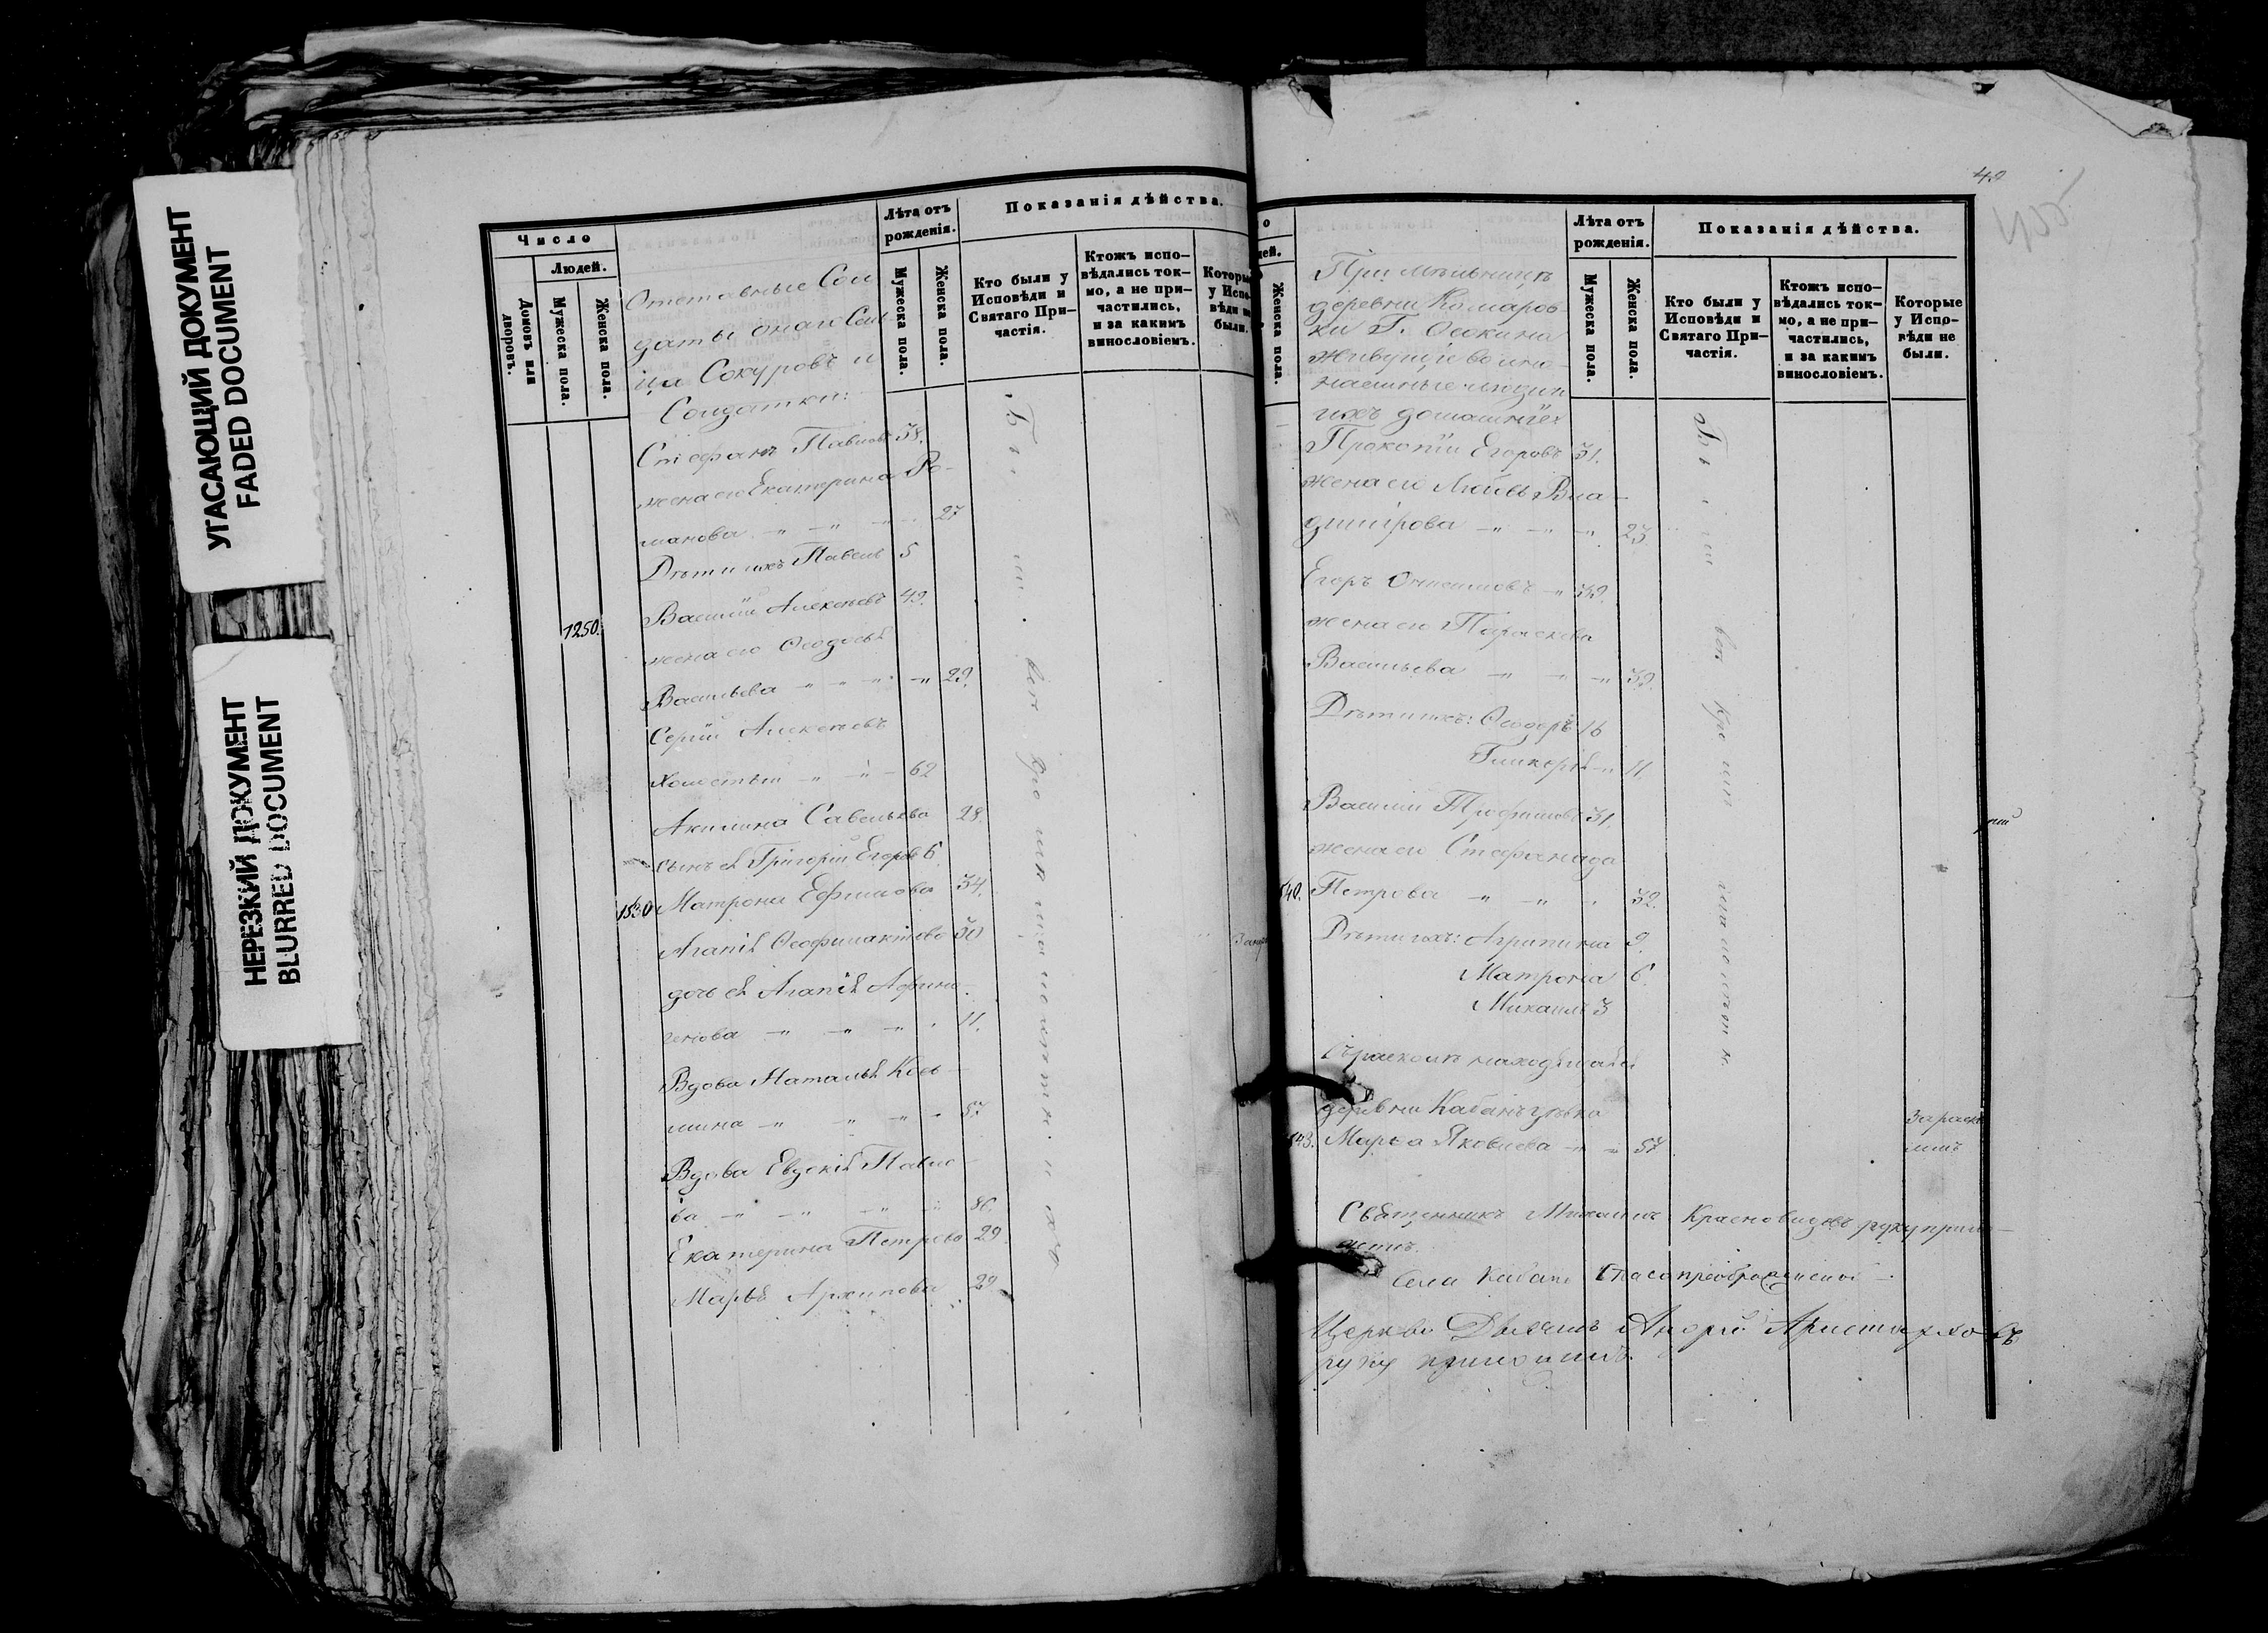 УГАСАЮЩИЙ ДОКУМЕНТ
FADED DOCUMENT
НЕРЕЗКИЙ ДОКУМЕНТ
BLURRED DOCUMENT
Число
Людей.
Домовъ или дворовъ.
Мужеска пола.
Женска пола.
Лѣта отъ рожденія.
Мужеска пола.
Женска пола.
Показанія дѣйства.
Кто были у Исповѣди и Святаго Причастія.
Ктожъ исповѣдались токмо, а не причастились, и за какимъ винословіемъ.
Которые у Испо-
вѣди не
были.
Отставные Сол
даты онаго Сель
ца Сокуровъ и
Солдатки:
Стефанъ Павловъ 38.
жена его Екатерина Ро-
манова 27
Дѣти ихъ Павелъ 5
1250. Василій Алексѣевъ 49.
жена его Ѳеодосья
Васильева 29.
Сергій Алексѣевъ
Холостый 62
Акилина Савельева 28.
сынъ ея Григорій Егоровъ 6
1530 Матрона Ефимова 34.
Агапія Ѳеофилактова 30
дочь ея Агапія Афино
генова 11.
Вдова Наталья Козь-
мина 57.
Вдова Евдокія Павло-
ва 86.
Екатерина Петрова 29
Марья Архипова 29
Были
все
49
ей.
Женска пола.
Лѣта отъ рожденія.
Мужеска пола.
Женска пола.
Показанія дѣйства.
Кто были у Исповѣди и Святаго Причастія.
Ктожъ исповѣдались токмо, а не причастились, и за какимъ винословіемъ.
Которые у Исповѣди не были.
При мѣльницѣ
деревни Комаров-
ки Г. Осокина
живущіе во оной
наемные люди и
ихъ домашніе:
Прокопій Егоровъ 31.
жена его Любовь Вла-
димірова 23
Егоръ Онисимовъ 39.
жена его Параскева
Васильева 39.
Дѣти ихъ: Ѳеодоръ 16
Гликерія 11.
Василій Трофимовъ 31.
жена его Стефанида
540. Петрова 32.
Дѣти ихъ: Агрипина 9.
Матрона 6
Михаилъ 3
Въ расколѣ находящаяся
деревни
543. Марья Яковлева 57
За раско
ломъ
Были все
Священникъ Михаилъ Красновидовъ руку прило-
жилъ.
Села Кабанъ Спасопреображенской
Церкви Дьячекъ Андрей Аристарховъ
руку приложилъ.